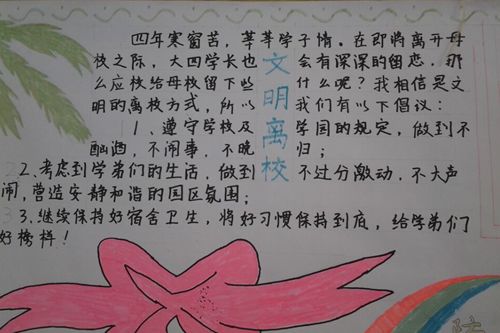 四年寒窗苦，莘莘学子情。在即将离开母
校之际，大四学长也会有深深的留恋，那
么应校给母校留下些什么呢？我相信是文
明的离校方式，所以我们有以下倡议：
1、遵守学校及学园的规定，做到不
酗酒，不闹事，不晚归；
2、考虑到学弟们的生活，做到不过分激动，不大声
闹，营造安静和谐的园区氛围；
3、继续保持好宿舍卫生，将好习惯保持到底，给学弟们
好榜样！
文明离校